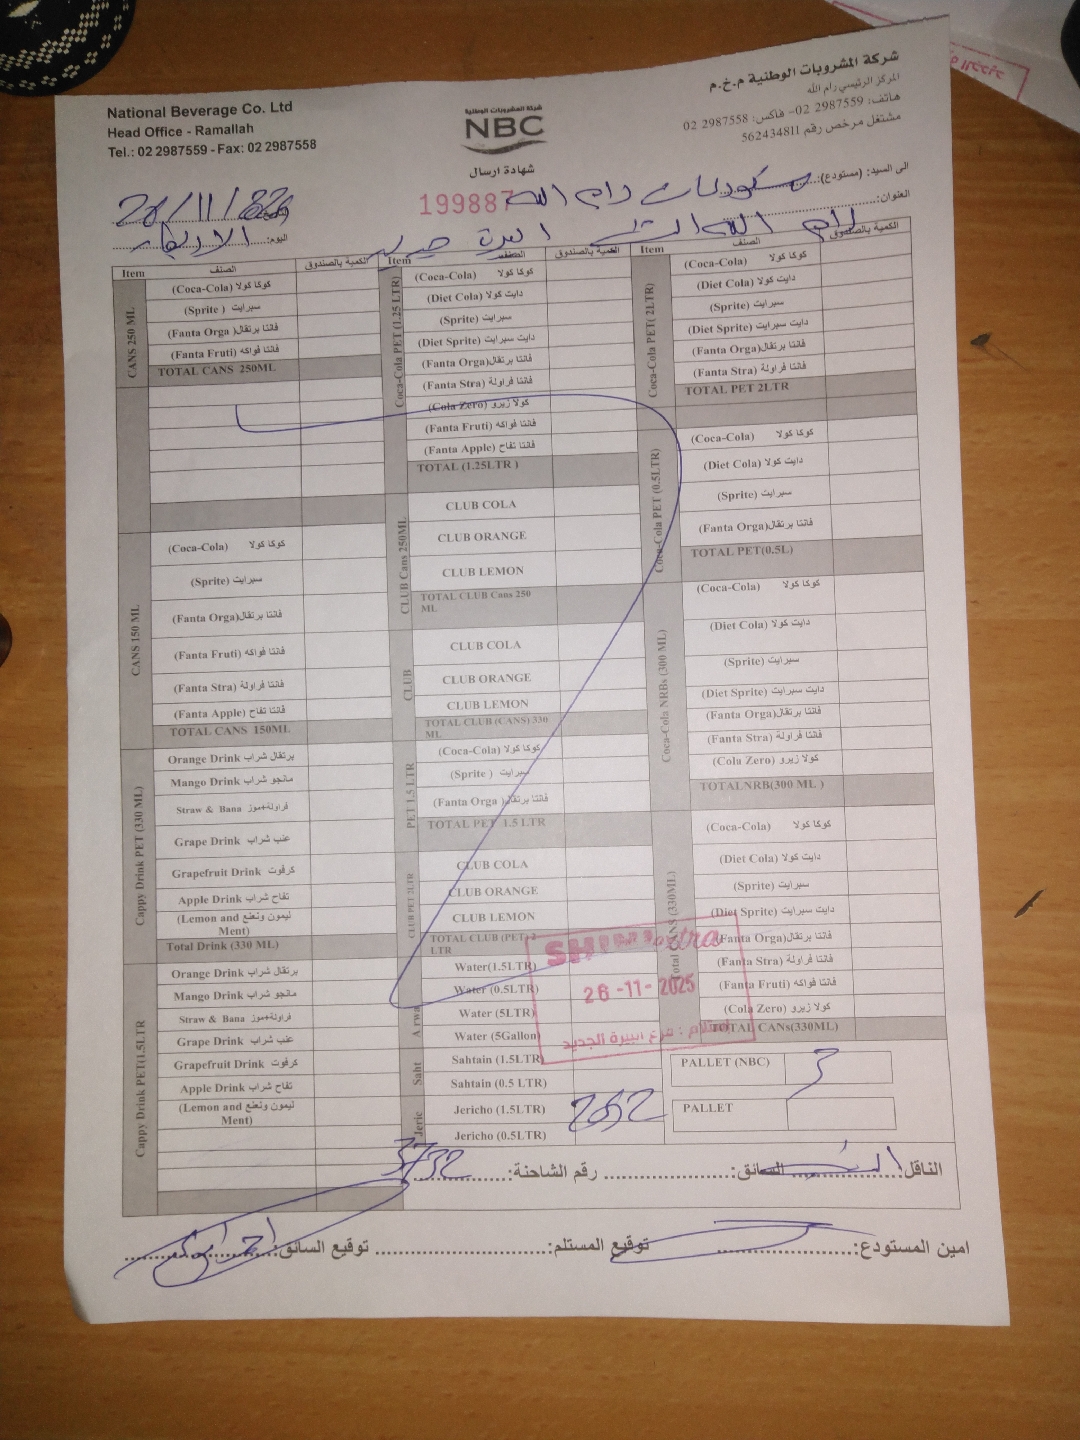 National Beverage Co. Ltd
Head Office - Ramallah
Tel.: 02 2987559 - Fax: 02 2987558
شركة المشروبات الوطنية
NBC
شهادة ارسال
199887
شركة المشروبات الوطنية م.خ.م
المركز الرئيسي رام الله
هاتف: 2987559 02- فاكس: 2987558 02
مشتغل مرخص رقم 562434811
الى السيد: (مستودع): رام الله
العنوان: رام الله
اليوم: الاربعاء
Item الصنف الكمية بالصندوق
CANS 250 ML
(Coca-Cola) كوكا كولا
(Sprite ) سبرايت
(Fanta Orga )فانتا برتقال
(Fanta Fruti) فانتا فواكه
TOTAL CANS 250ML
CANS 150 ML
(Coca-Cola) كوكا كولا
(Sprite) سبرايت
(Fanta Orga)فانتا برتقال
(Fanta Fruti) فانتا فواكه
(Fanta Stra) فانتا فراولة
(Fanta Apple) فانتا تفاح
TOTAL CANS 150ML
Cappy Drink PET (330 ML)
Orange Drink برتقال شراب
Mango Drink مانجو شراب
Straw & Bana فراولة+موز
Grape Drink عنب شراب
Grapefruit Drink كرفوت
Apple Drink تفاح شراب
(Lemon and ليمون ونعنع
Ment)
Total Drink (330 ML)
Cappy Drink PET(1.5LTR
Orange Drink برتقال شراب
Mango Drink مانجو شراب
Straw & Bana فراولة+موز
Grape Drink عنب شراب
Grapefruit Drink كرفوت
Apple Drink تفاح شراب
(Lemon and ليمون ونعنع
Ment)
Item الصنف الكمية بالصندوق
Coca-Cola PET (1.25 LTR)
(Coca-Cola) كوكا كولا
(Diet Cola) دايت كولا
(Sprite) سبرايت
(Diet Sprite) دايت سبرايت
(Fanta Orga)فانتا برتقال
(Fanta Stra) فانتا فراولة
(Cola Zero) كولا زيرو
(Fanta Fruti) فانتا فواكه
(Fanta Apple) فانتا تفاح
TOTAL (1.25LTR )
CLUB Cans 250ML
CLUB COLA
CLUB ORANGE
CLUB LEMON
TOTAL CLUB Cans 250
ML
CLUB
CLUB COLA
CLUB ORANGE
CLUB LEMON
TOTAL CLUB (CANS) 330
ML
PET 1.5 LTR
(Coca-Cola) كوكا كولا
(Sprite ) سبرايت
(Fanta Orga )فانتا برتقال
TOTAL PET 1.5 LTR
CLUB PET 2LTR
CLUB COLA
CLUB ORANGE
CLUB LEMON
TOTAL CLUB (PET) 2
LTR
Arwa
Water(1.5LTR)
Water (0.5LTR)
Water (5LTR)
Water (5Gallon)
Saht
Sahtain (1.5LTR)
Sahtain (0.5 LTR)
Jeric
Jericho (1.5LTR)
Jericho (0.5LTR)
Item الصنف الكمية بالصندوق
Coca-Cola PET( 2LTR)
(Coca-Cola) كوكا كولا
(Diet Cola) دايت كولا
(Sprite) سبرايت
(Diet Sprite) دايت سبرايت
(Fanta Orga)فانتا برتقال
(Fanta Stra) فانتا فراولة
TOTAL PET 2LTR
Coca-Cola PET (0.5LTR)
(Coca-Cola) كوكا كولا
(Diet Cola) دايت كولا
(Sprite) سبرايت
(Fanta Orga)فانتا برتقال
TOTAL PET(0.5L)
Coca-Cola NRBs (300 ML)
(Coca-Cola) كوكا كولا
(Diet Cola) دايت كولا
(Sprite) سبرايت
(Diet Sprite) دايت سبرايت
(Fanta Orga)فانتا برتقال
(Fanta Stra) فانتا فراولة
(Cola Zero) كولا زيرو
TOTALNRB(300 ML )
Total CANS (330ML)
(Coca-Cola) كوكا كولا
(Diet Cola) دايت كولا
(Sprite) سبرايت
(Diet Sprite) دايت سبرايت
(Fanta Orga)فانتا برتقال
(Fanta Stra) فانتا فراولة
(Fanta Fruti) فانتا فواكه
(Cola Zero) كولا زيرو
TOTAL CANs(330ML)
26 -11- 2025
استلام : فرع البيرة الجديد
PALLET (NBC) 3
PALLET
الناقل: السائق: رقم الشاحنة: 3732
امين المستودع: توقيع المستلم: توقيع السائق: